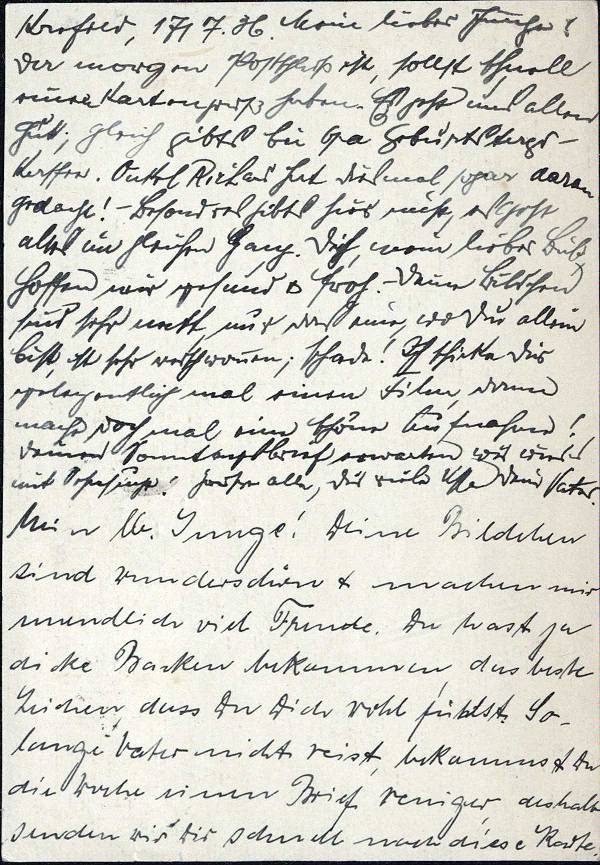 Krefeld, 17/7.36. Mein lieber Junge!
Da morgen Postschluß ist, sollst schnell
einen Kartengruß haben. Es geht uns allen
gut, gleich gibts bei Opa Geburtstags-
kaffee. Onkel Richard hat diesmal sogar daran
gedacht! - Besonderes gibts hier nicht, es geht
alles im gleichen Gang. Dich, mein lieber Bub,
hoffen wir gesund & froh. - Deine Bildchen
sind sehr nett, nur das eine, wo Du allein
bist, ist sehr verschwommen, schade! Ich schicke Dir
gelegentlich mal einen Film, dann
mach doch mal eine schöne Aufnahme!
Deinen Sonntagsbrief erwarten wir
mit Sehnsucht! Grüße alle, Dir viele Küsse Dein Vater.
Mein lb. Junge! Deine Bildchen
sind wunderschön & machen mir
unendlich viel Freude. Du hast ja
dicke Backen bekommen, das beste
Zeichen, dass Du Dich wohl fühlst. So-
lange Vater nicht reist, bekommst Du
die Woche einen Brief weniger, deshalb
senden wir Dir schnell noch diese Karte.